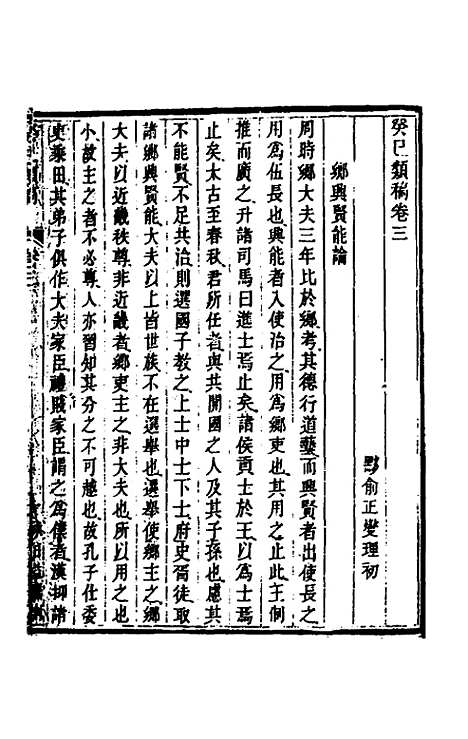 癸巳類稿卷三
黟俞正燮理初
鄉興賢能論
周時鄉大夫三年比於鄉考其德行道藝而興賢者出使長之
用爲伍長也興能者入使治之用爲鄉吏也其用之止此王制
推而廣之升諸司馬曰進士焉止矣諸侯貢士於王以爲士焉
止矣太古至春秋君所任者與共開國之人及其子孫也慮其
不能賢不足共治則選國子教之上士中士下士府史胥徒取
諸鄉興賢能大夫以上皆世族不在選舉也選舉使鄉主之鄉
大夫以近畿秩尊非近畿者鄉吏主之非大夫也所以用之也
小故主之者不必尊人亦習知其分之不可越也故孔子仕委
吏乘田其弟子俱作大夫家臣禮賤家臣謂之爲僕者漢抑諸